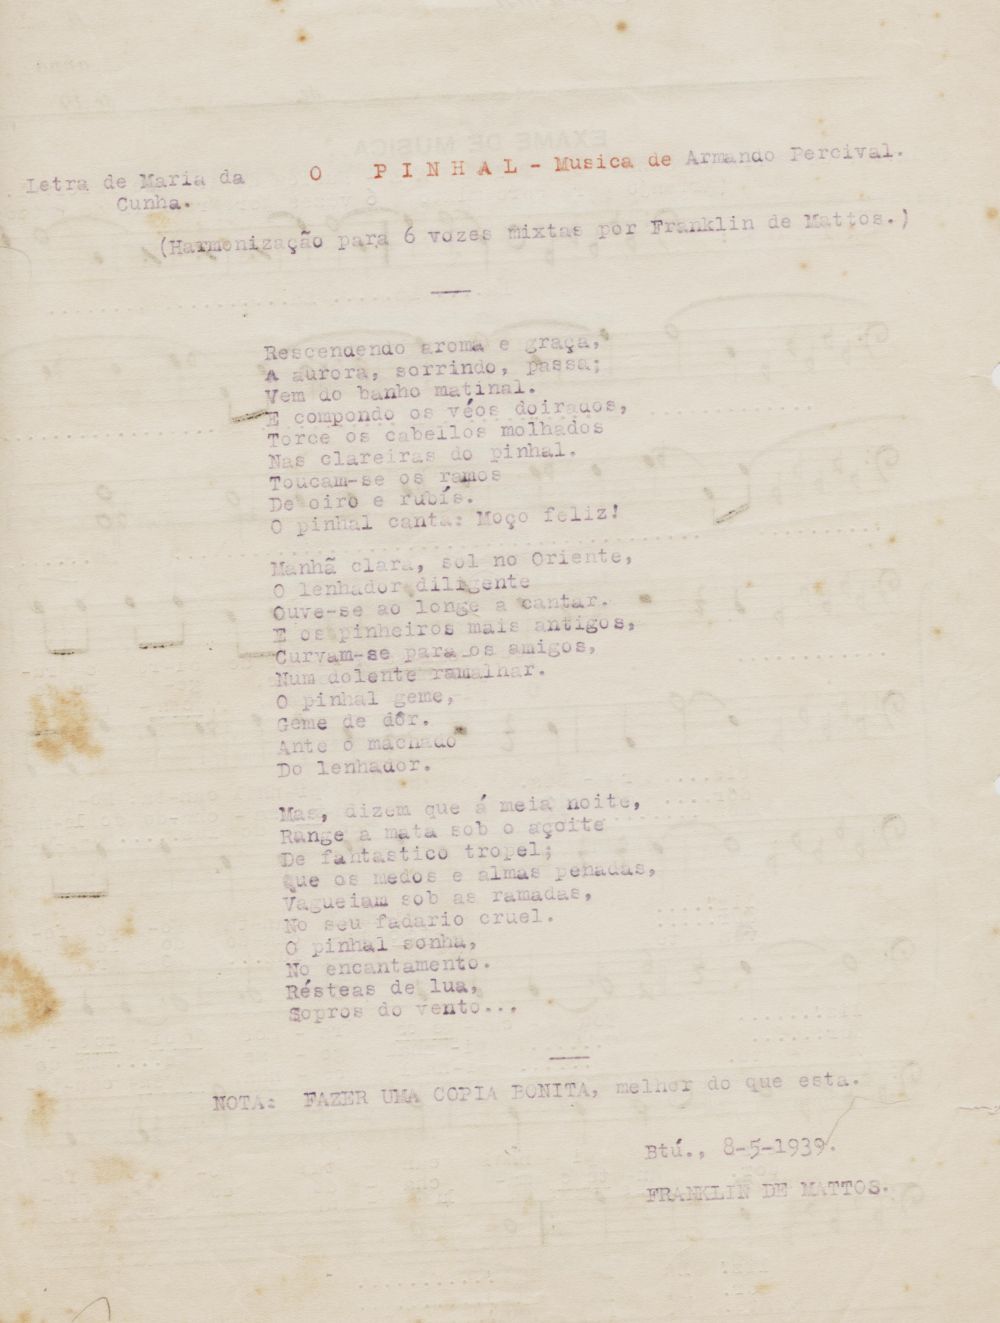 O PINHAL - Musica de Armando Percival.
Letra de Maria da
Cunha.
(Harmonização para 6 vozes mixtas por Franklin de Mattos.)
Rescendendo aroma e graça,
A aurora, sorrindo, passa;
Vem do banho matinal.
E compondo os véos doirados,
Torce os cabellos molhados
Nas clareiras do pinhal.
Toucam-se os ramos
De oiro e rubís.
O pinhal canta: Moço feliz!
Manhã clara, sol no Oriente,
O lenhador diligente
Ouve-se ao longe a cantar.
E os pinheiros mais antigos,
Curvam-se para os amigos,
Num dolente ramalhar.
O pinhal geme,
Geme de dôr.
Ante o machado
Do lenhador.
Mas, dizem que á meia noite,
Range a mata sob o açoite
De fantastico tropel;
Que os medos e almas penadas,
Vagueiam sob as ramadas,
No seu fadario cruel.
O pinhal sonha,
No encantamento.
Résteas de lua,
Sopros do vento...
NOTA: FAZER UMA COPIA BONITA, melhor do que esta.
Btú., 8-5-1939.
FRANKLIN DE MATTOS.